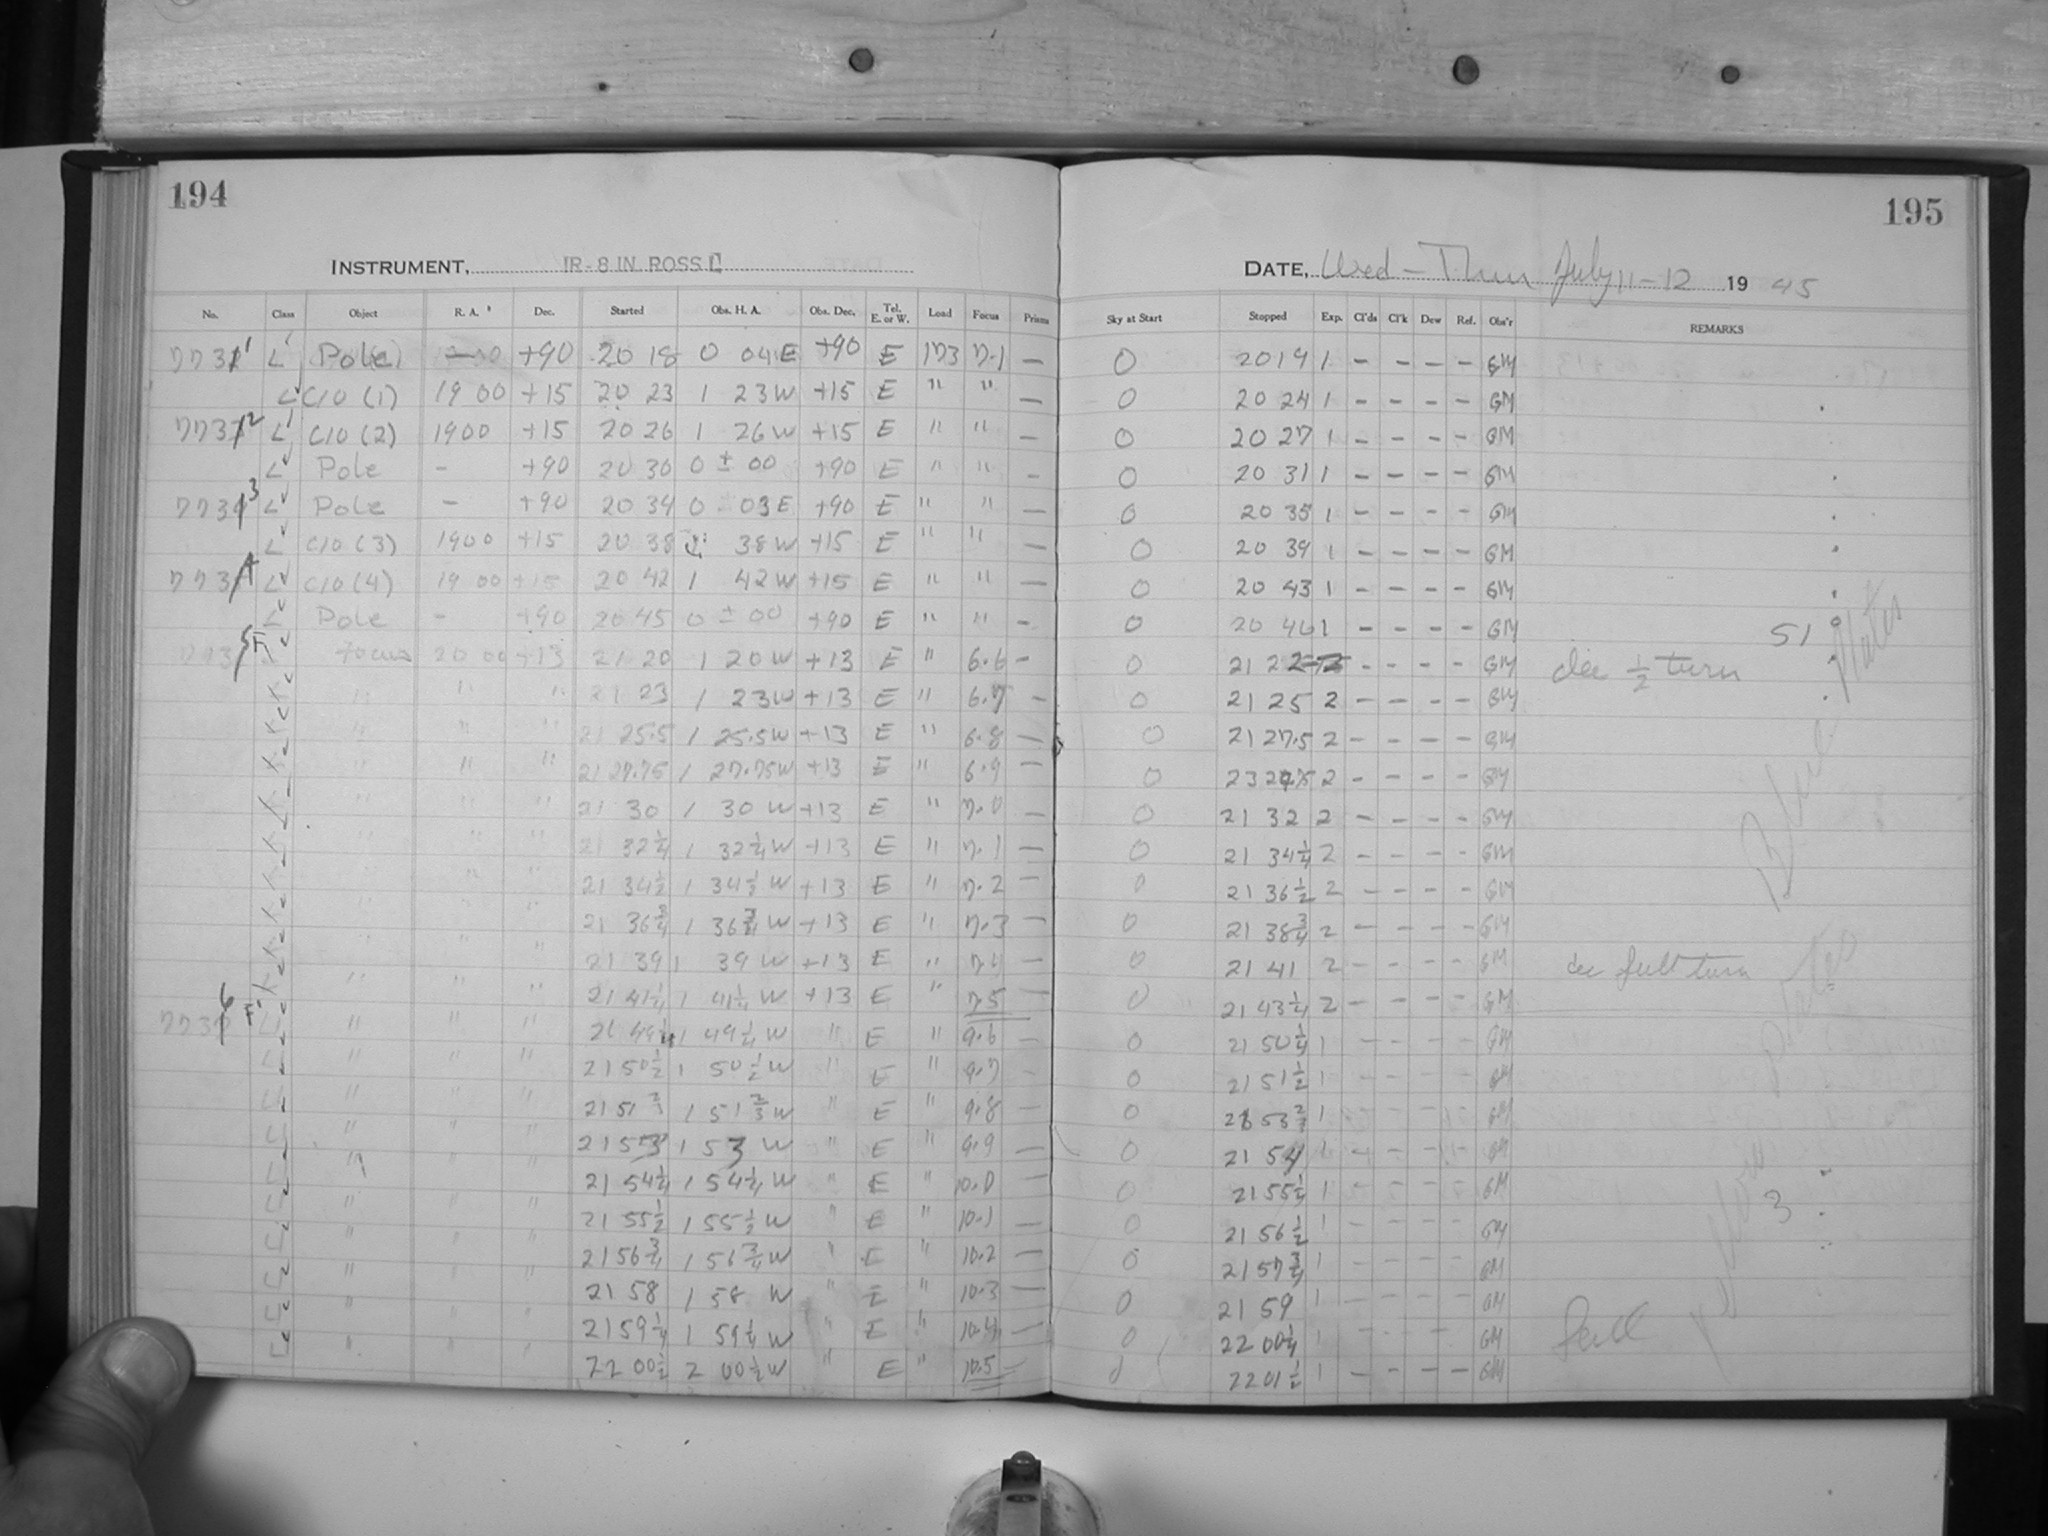 194
INSTRUMENT, IR-8 IN ROSS C
No. Class Object R. A. Dec. Started Obs. H. A. Obs. Dec. Tel. E. or W. Load Focus Prisms
7731 L Pole +90 20 18 0 04 E +90 E 173 7.1 —
L C10 (1) 19 00 +15 20 23 1 23 W +15 E " " —
7732 L C10 (2) 19 00 +15 20 26 1 26 W +15 E " " —
L Pole - +90 20 30 0 ± 00 +90 E " " —
7733 L Pole - +90 20 34 0 03 E +90 E " " —
L C10 (3) 19 00 +15 20 38 38 W +15 E " " —
7734 L C10 (4) 19 00 +15 20 42 1 42 W +15 E " " —
L Pole - +90 20 45 0 ± 00 +90 E " " —
5 F Focus 20 00 +13 21 20 1 20 W +13 E " 6.6 —
" " " 21 23 1 23 W +13 E " 6.7 —
" " " 21 25.5 1 25.5 W +13 E " 6.8 —
" " " 21 27.75 1 27.75 W +13 E " 6.9 —
" " " 21 30 1 30 W +13 E " 7.0 —
" " " 21 32 1/4 1 32 1/4 W +13 E " 7.1 —
" " " 21 34 1/2 1 34 1/2 W +13 E " 7.2 —
" " " 21 36 3/4 1 36 3/4 W +13 E " 7.3 —
" " " 21 39 1 39 W +13 E " 7.4 —
" " " 21 41 1/4 1 41 1/4 W +13 E " 7.5 —
7736 F " " " 21 49 1/4 1 49 1/4 W " E " 9.6 —
" " " 21 50 1/2 1 50 1/2 W " E " 9.7 —
" " " 21 51 1 51 W " E " 9.8 —
" " " 21 53 1 53 W " E " 9.9 —
" " " 21 54 1/4 1 54 1/4 W " E " 10.0 —
" " " 21 55 1/2 1 55 1/2 W " E " 10.1 —
" " " 21 56 3/4 1 56 3/4 W " E " 10.2 —
" " " 21 58 1 58 W " E " 10.3 —
" " " 21 59 1/4 1 59 1/4 W " E " 10.4 —
" " " 22 00 1/2 2 00 1/2 W " E " 10.5 —
195
DATE, Wed - Thur July 11-12 1945
Sky at Start Stopped Exp. Cl'ds Cl'k Dew Ref. Obs'r REMARKS
0 20 19 1 - - - - GM
0 20 24 1 - - - - GM
0 20 27 1 - - - - GM
0 20 31 1 - - - - GM
0 20 35 1 - - - - GM
0 20 39 1 - - - - GM
0 20 43 1 - - - - GM
0 20 46 1 - - - - GM 51
0 21 22 2 - - - - GM dec 1/2 turn
0 21 25 2 - - - - GM
0 21 27.5 2 - - - - GM
0 2 - - - - GM
0 21 32 2 - - - - GM
0 21 34 1/4 2 - - - - GM
0 21 36 1/2 2 - - - - GM
0 21 38 3/4 2 - - - - GM
0 21 41 2 - - - - GM dec full turn
0 21 43 1/4 2 - - - - GM
0 21 50 1/4 1 - - - - GM
0 21 51 1/2 1 - - - - GM
0 1 - - - - GM
0 21 54 1 - - - - GM
0 21 55 1/4 1 - - - - GM
0 21 56 1/2 1 - - - - GM 3
0 21 57 3/4 1 - - - - GM
0 21 59 1 - - - - GM
0 22 00 1/4 1 - - - - GM
0 22 01 1/2 1 - - - - GM
Blue plates
yellow plates